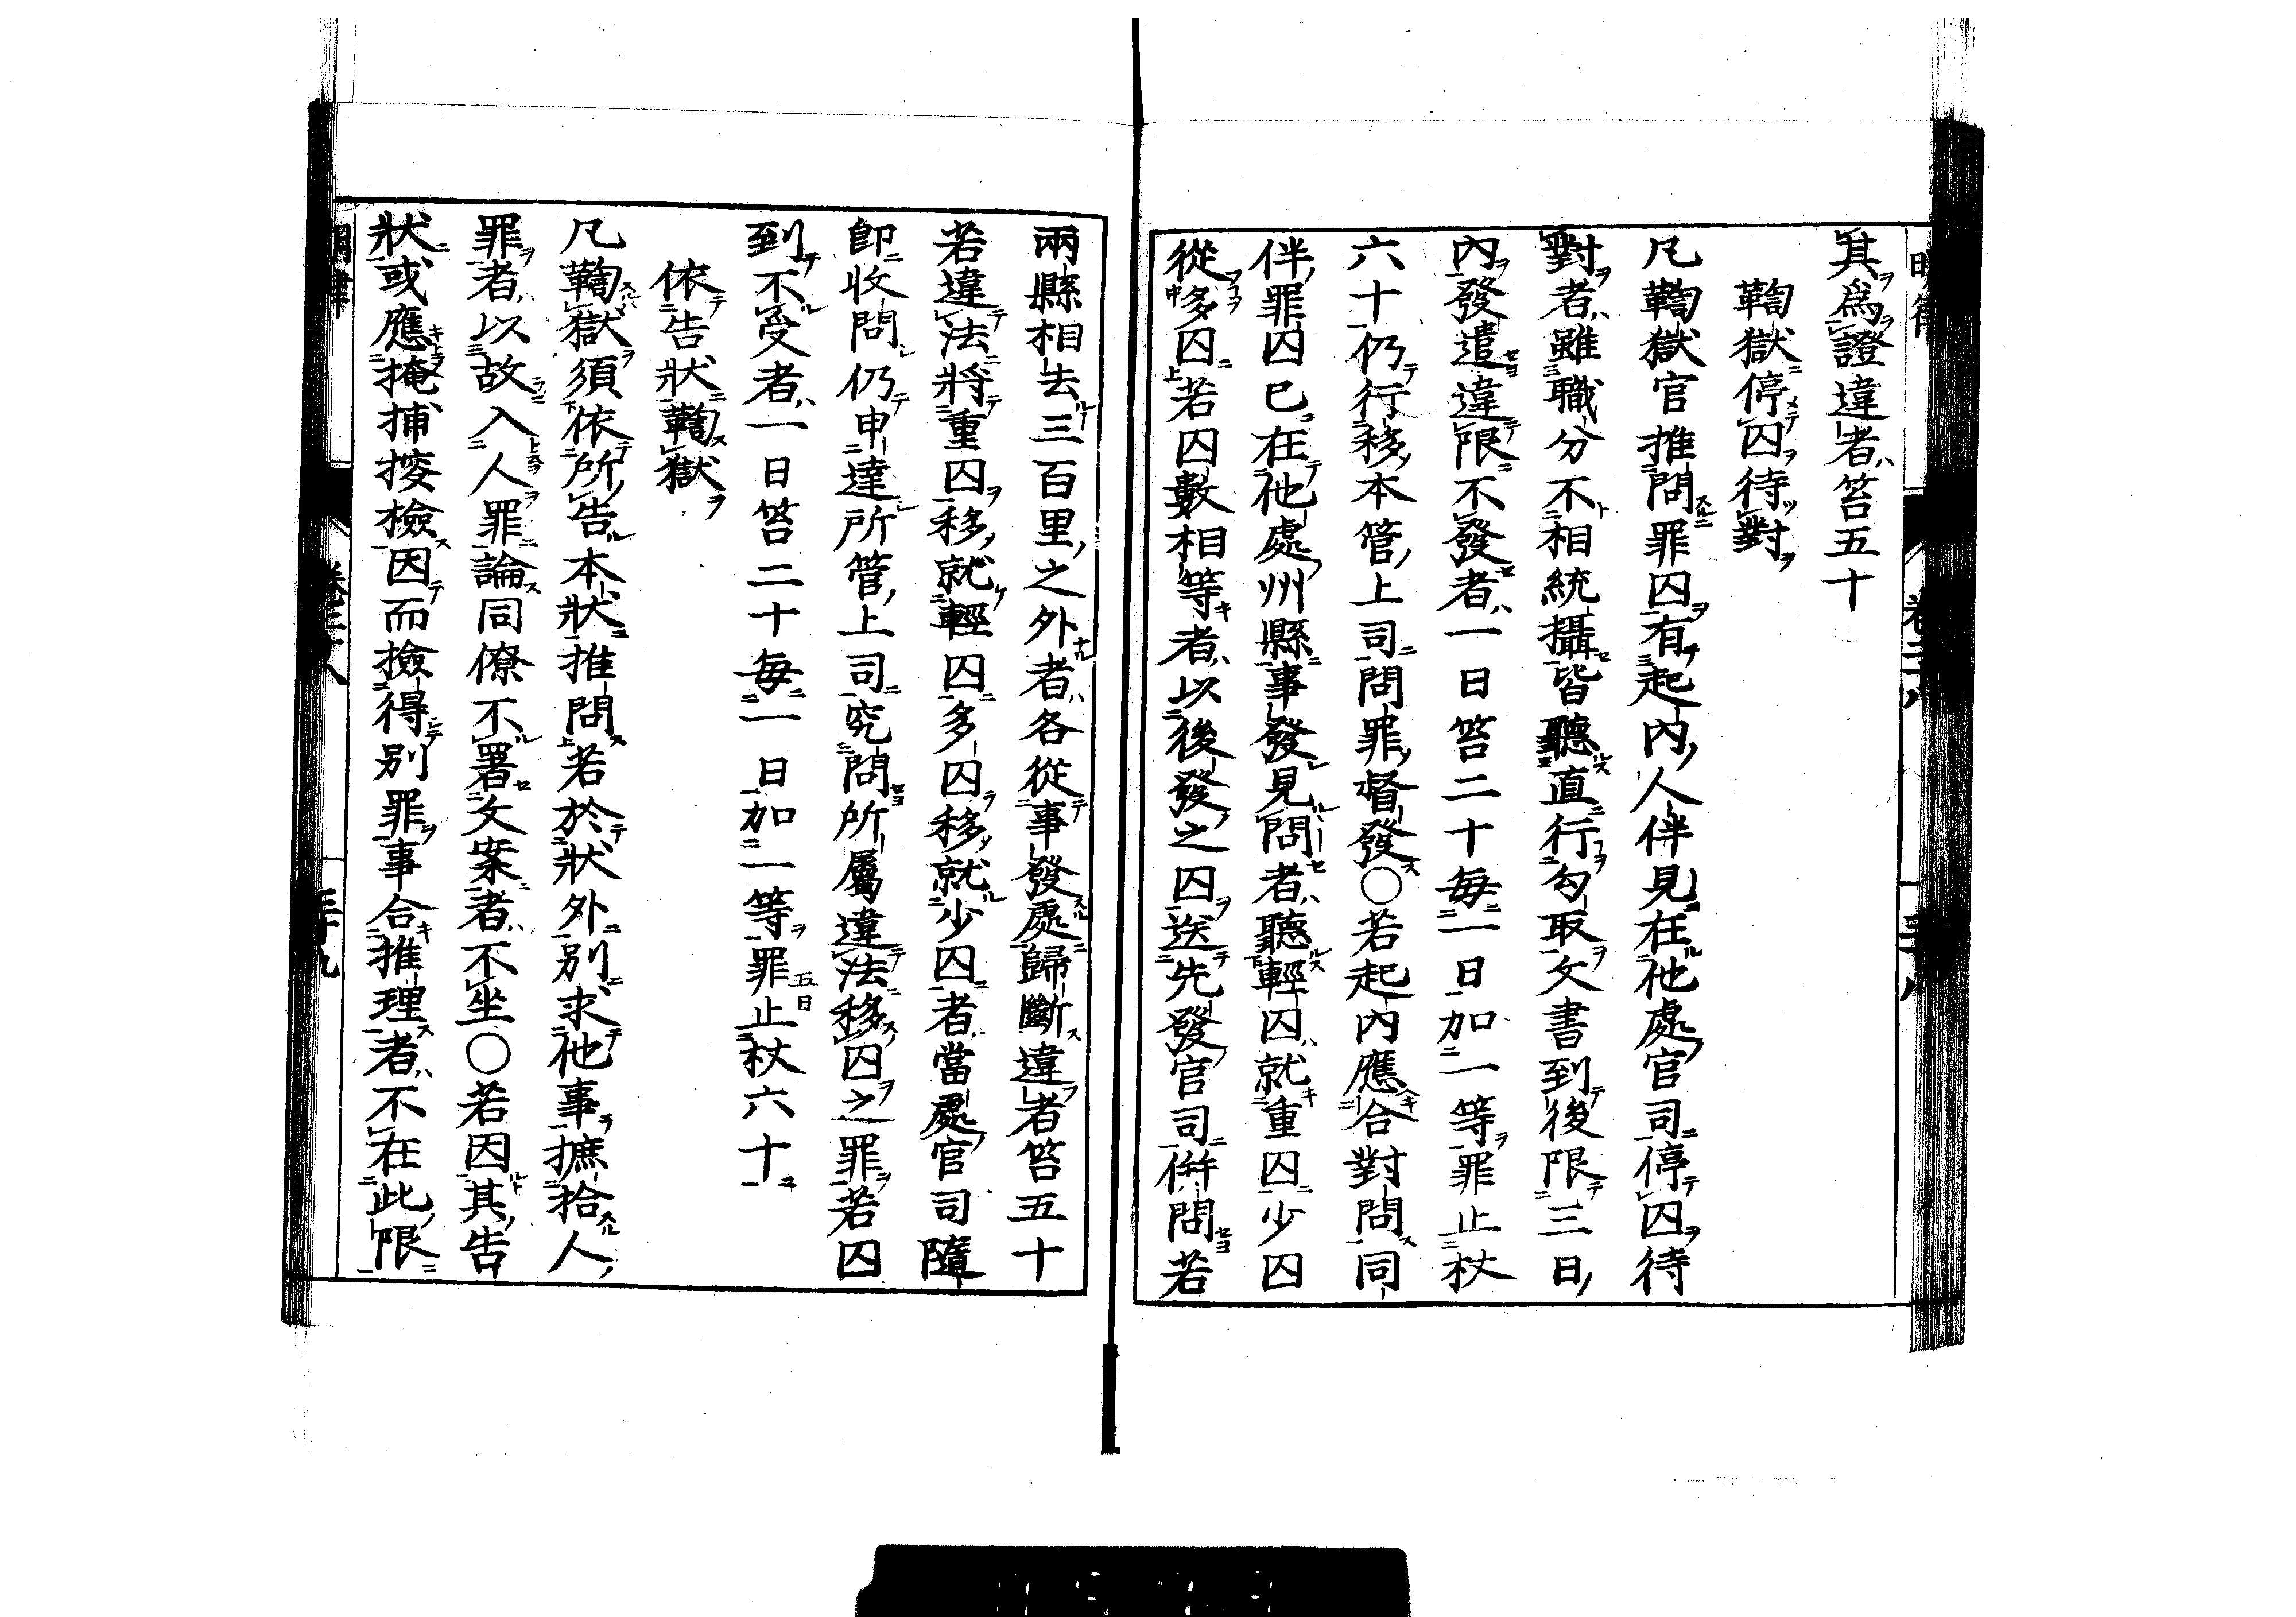 其爲證違者笞五十
鞫獄停囚待對
凡鞫獄官推問罪囚有起內人伴見在他處官司停囚待
對者雖職分不相統攝皆聽直行勾取文書到後限三日
內發遣違限不發者一日笞二十每一日加一等罪止杖
六十仍行移本管上司問罪督發○若起內應合對問同
伴罪囚已在他處州縣事發見問者聽輕囚就重囚少囚
從多囚若囚數相等者以後發之囚送先發官司併問若
兩縣相去三百里之外者各從事發處歸斷違者笞五十
若違法將重囚移就輕囚多囚移就少囚者當處官司隨
卽收問仍申達所管上司究問所屬違法移囚之罪若囚
到不受者一日笞二十每一日加一等罪止杖六十
五日
依告狀鞫獄
凡鞫獄須依所告本狀推問若於狀外別求他事摭拾人
罪者以故入人罪論同僚不署文案者不坐○若因其告
狀或應掩捕搜檢因而撿得別罪事合推理者不在此限